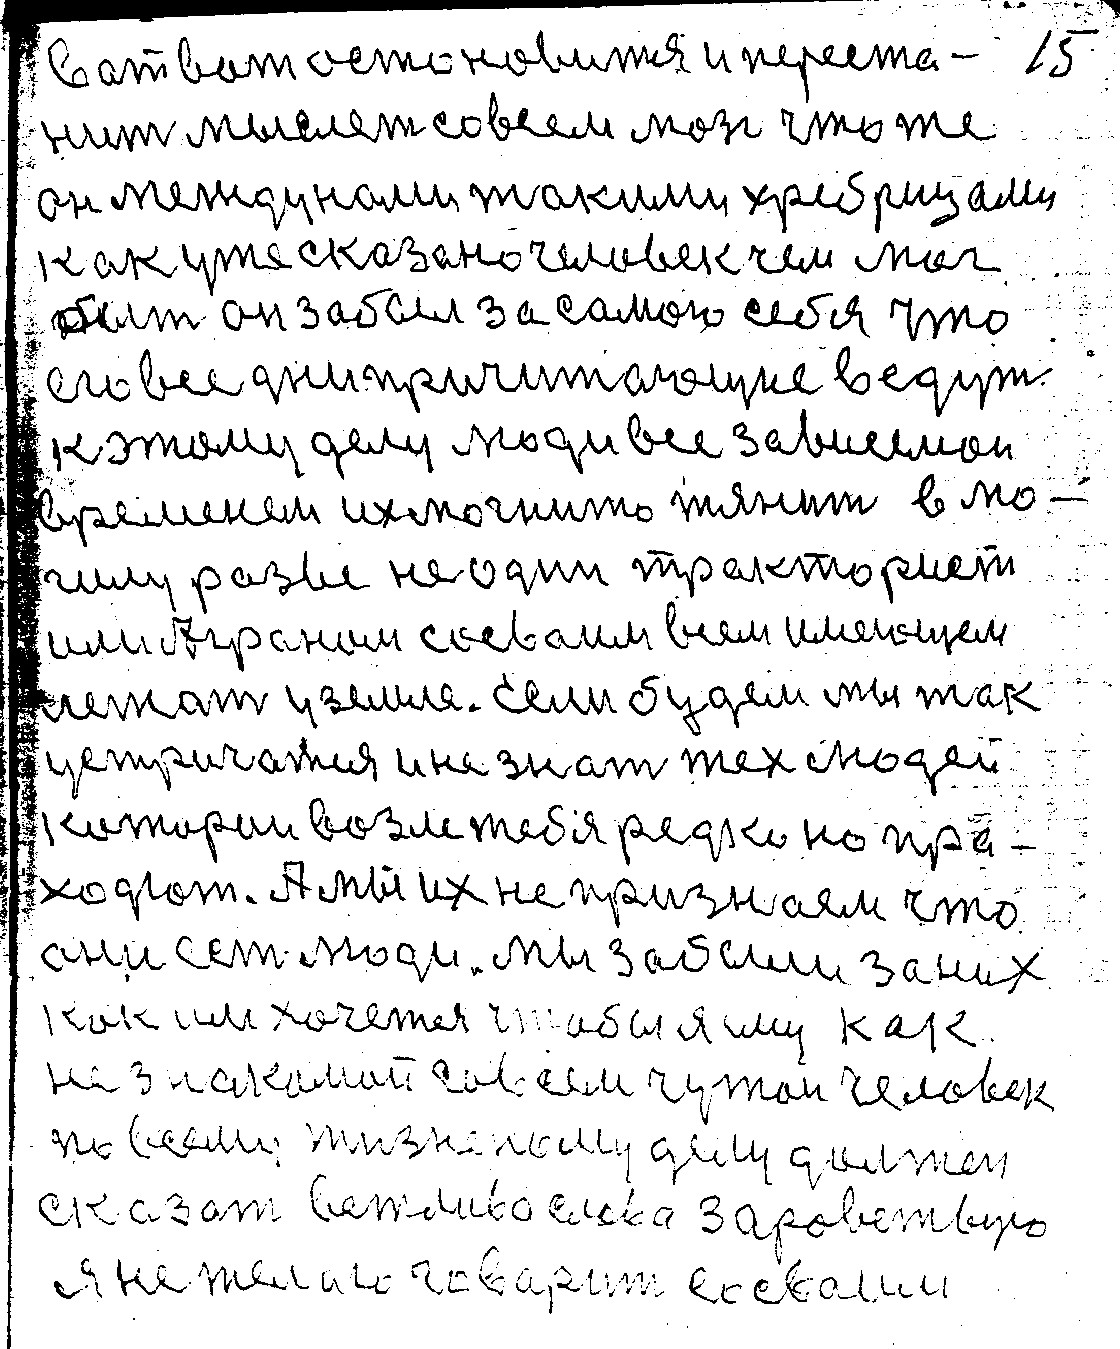 вот вот остоновится и переста- 15
нит мыслет совсем мозг что же
он между нами такими хребрицами
как уже сказано человек чем мог
быт он забыл за самого себя что
его все дни причитающие ведут
к этому делу люди все зависемои
временем их могнито тянит в мо-
гилу разве не один тракторист
или Аграном сосваим всем имеющем
лежат у земле. если будем мы так
устричатся и не знат тех людей
котори возле тебя редко но пра-
ходют. А мы их не признаем что
они сет люди. мы забыли за них
как им хочется чтобы я иму как
не знакомой совсем чужои человек
по всему жизненому делу должен
сказат вежливо слова здраветвую
я не желаю говарит сосваим